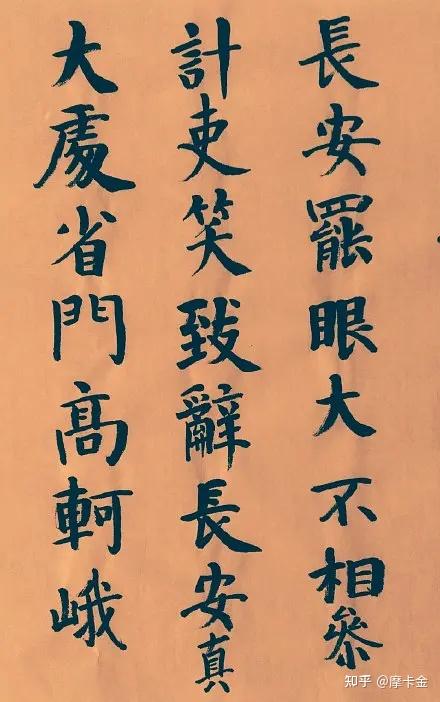 長安罷眼大不相參
計吏笑致辭長安真
大處省門高軻峨
知乎 @摩卡金